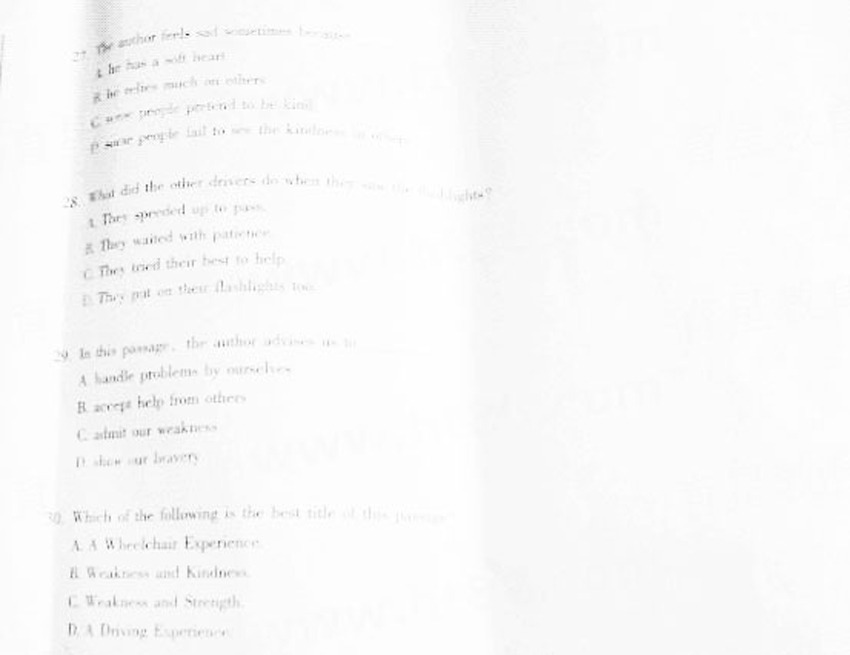 27. The author feels sad sometimes because
A. he has a soft heart
B. he relies much on others
C. some people pretend to be kind
D. some people fail to see the kindness in others
28. What did the other drivers do when they saw the flashlights?
A. They speeded up to pass.
B. They waited with patience.
C. They tried their best to help.
D. They put on their flashlights too.
29. In this passage, the author advises us to
A. handle problems by ourselves
B. accept help from others
C. admit our weakness
D. show our bravery
30. Which of the following is the best title of this passage?
A. A Wheelchair Experience.
B. Weakness and Kindness.
C. Weakness and Strength.
D. A Driving Experience.